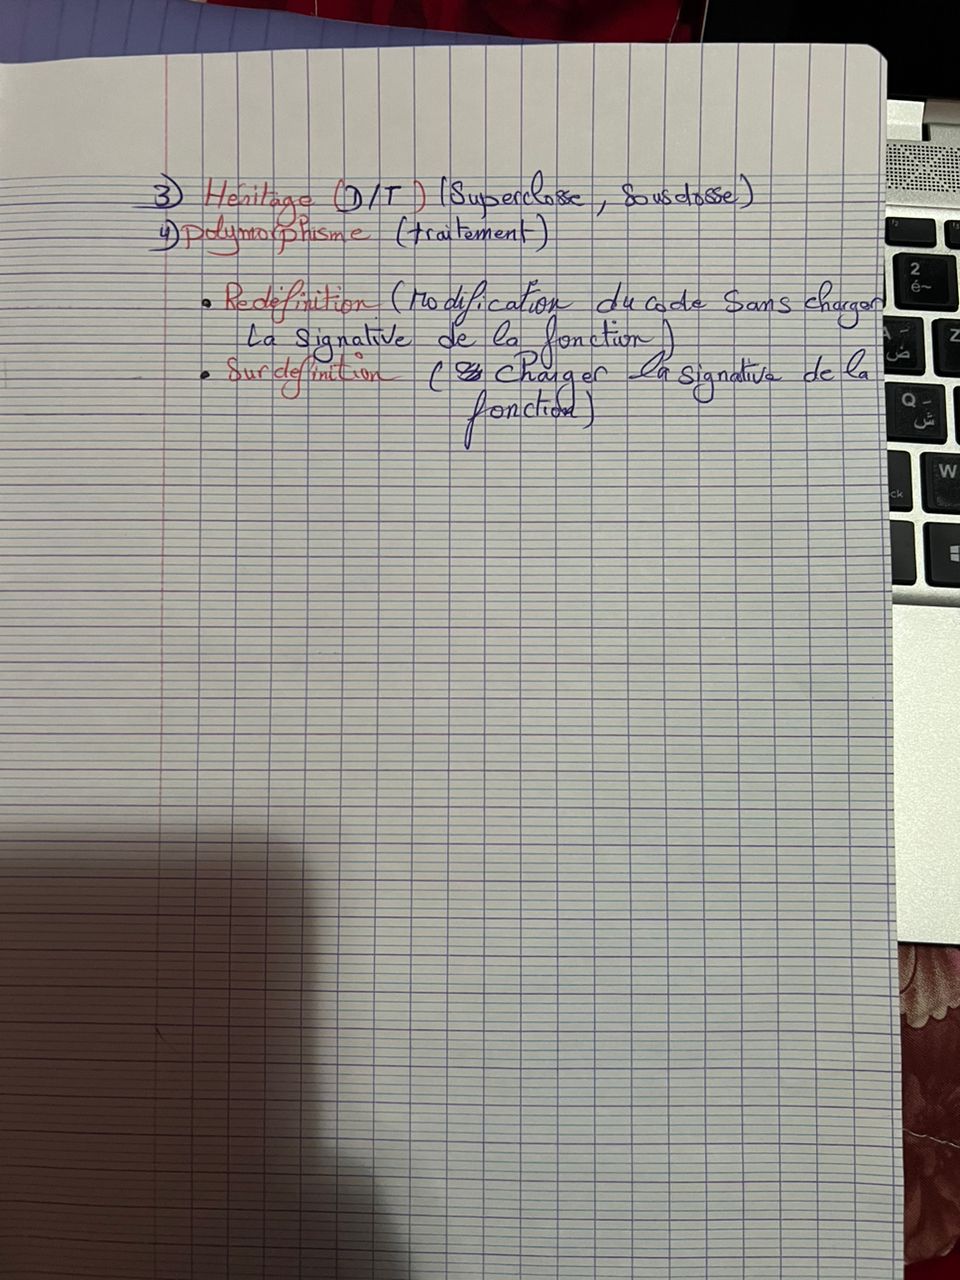 3) Héritage (D/T) (Superclasse, Sousclasse)
4) polymorphisme (traitement)
• Redéfinition (Modification du code Sans changer
La signative de la fonction)
• Surdefinition ( Changer la signative de la
fonction)
2
é~
Z
Q
W
ck